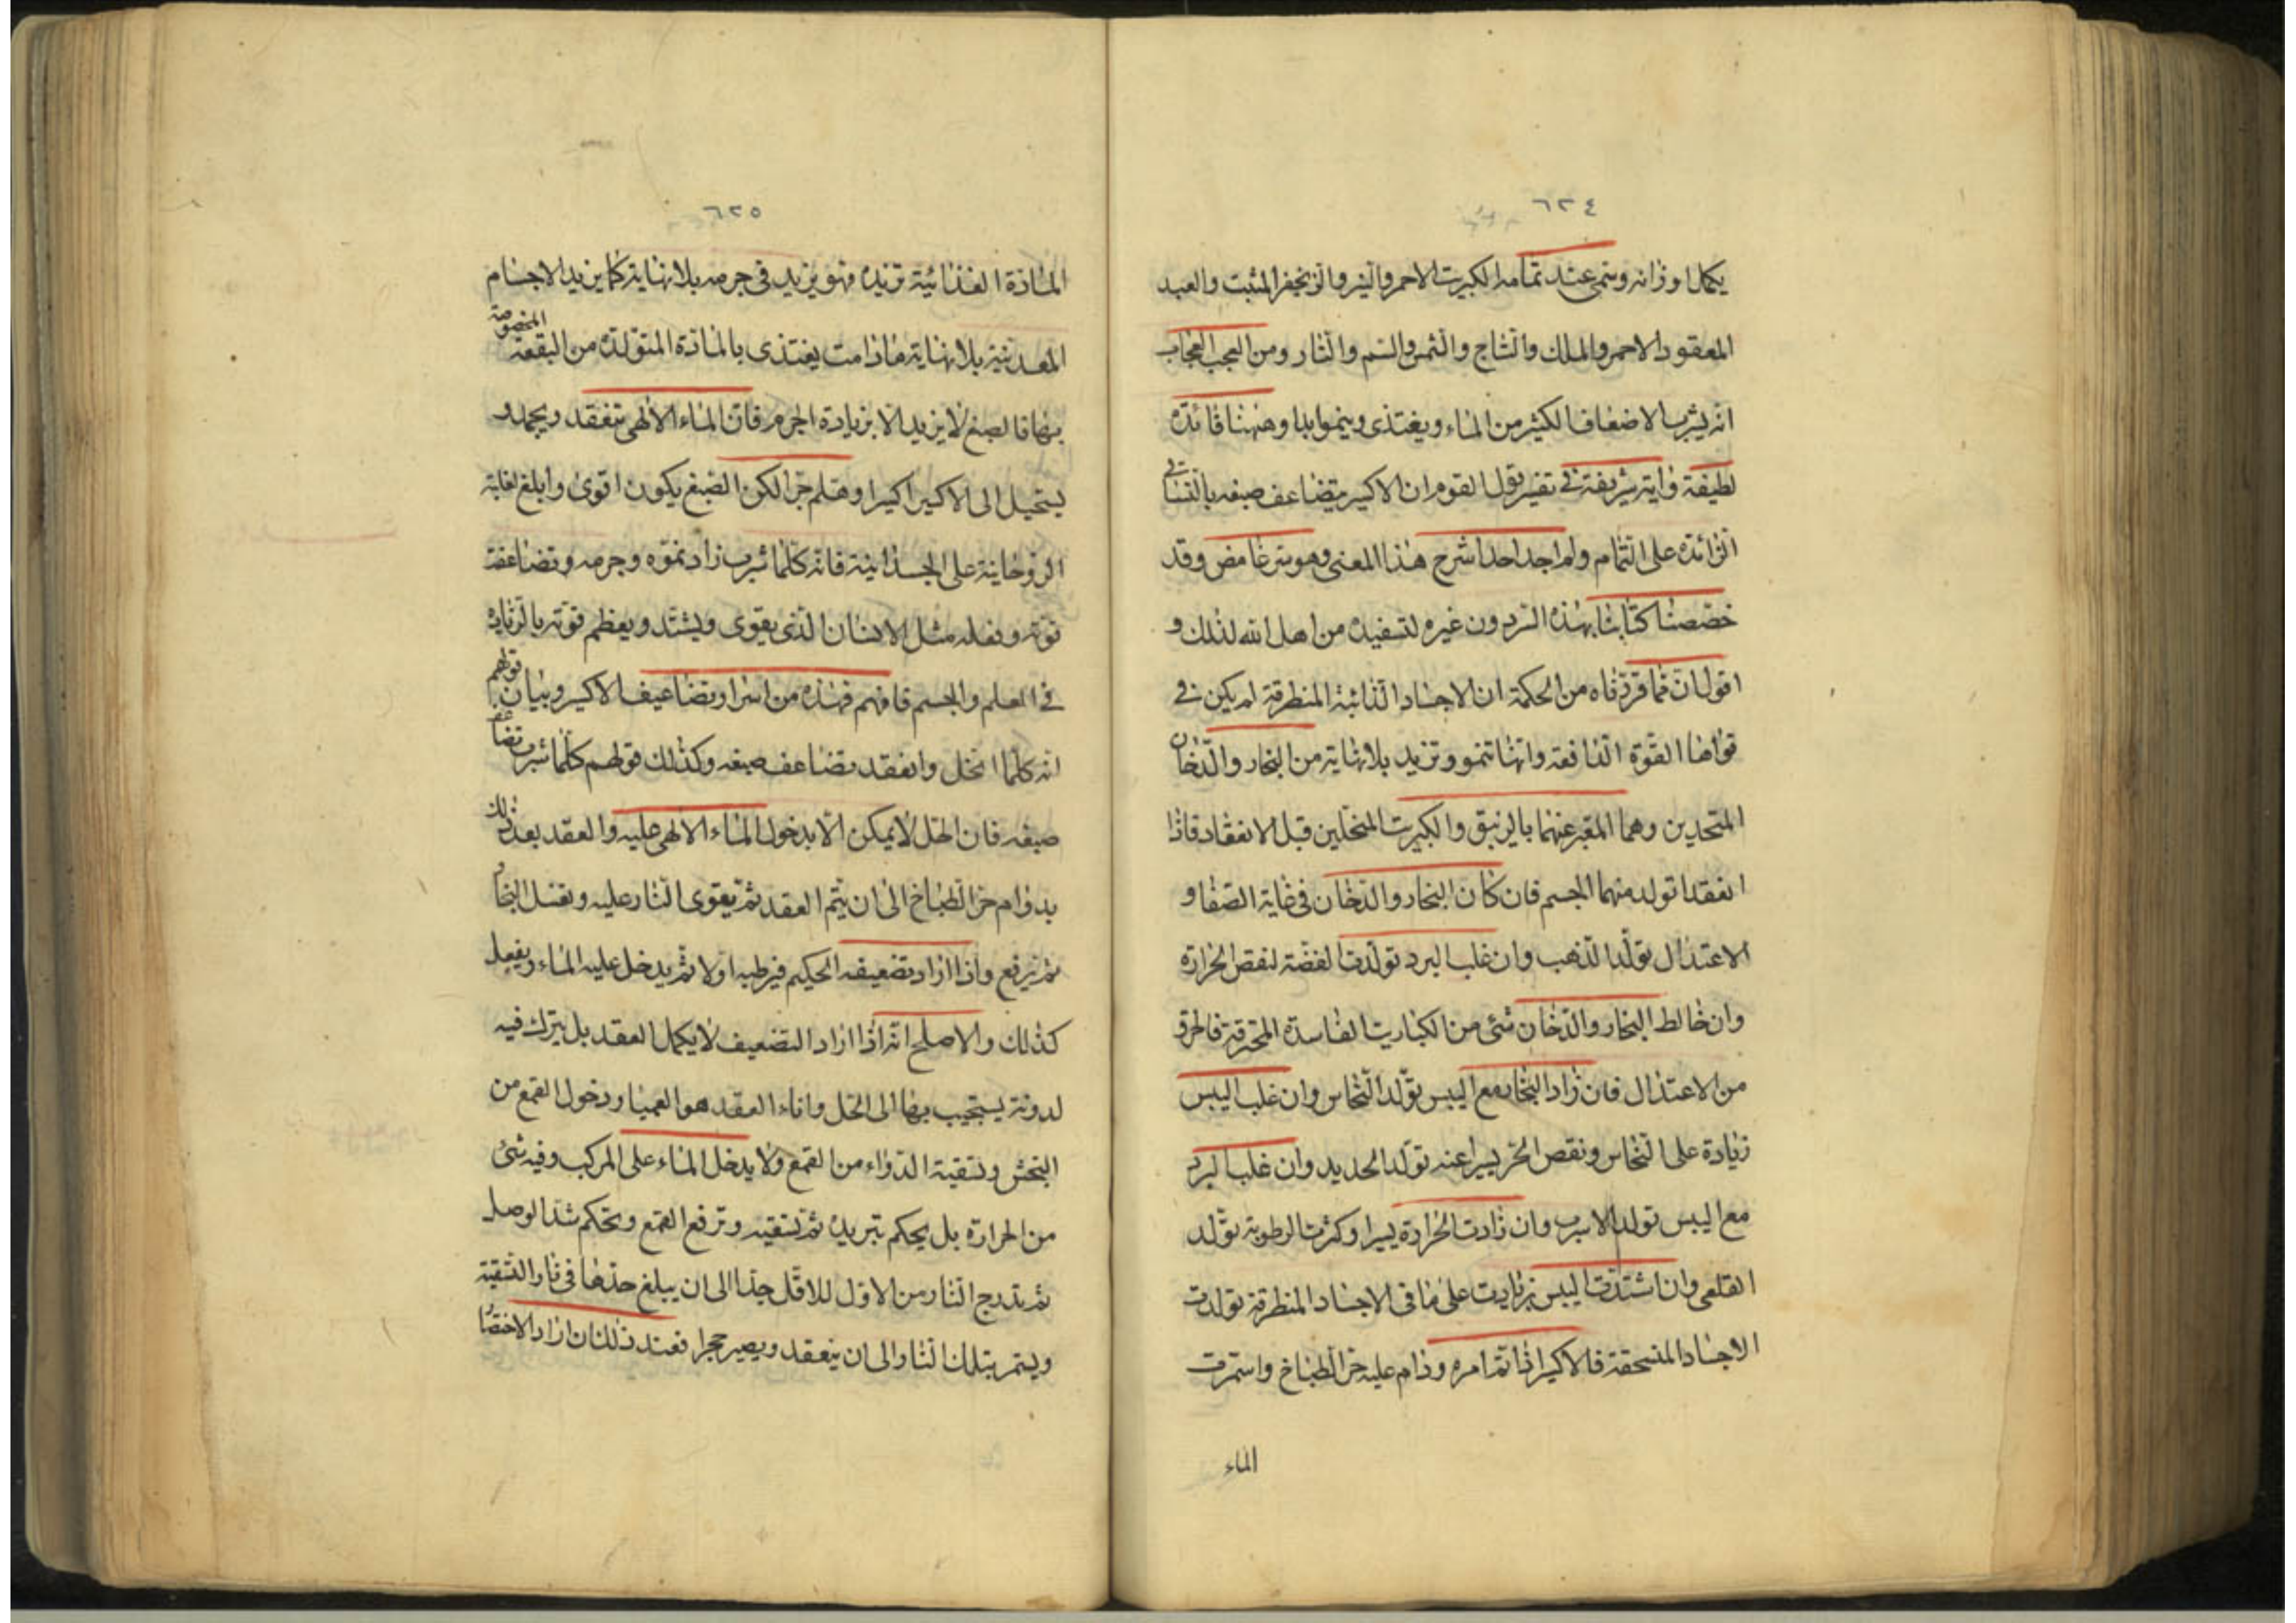 ٦٢٤
يكمل اوزانه ويتمى عند تمامه الكبريت الاحمر والنير والزنجفر المثبت والعبد
المعقود الاحمر والملك والتاج والثمن والسم والنار ومن العجب العجاب
انه يشرب الاضعاف الكثير من الماء ويغتذى وينموا ابدا وههنا فائدة
لطيفة واية شريفة فى تفسير قول القوم ان الاكسير يتضاعف صبغه بالتساقى
الزائدة على التمام ولم اجد احدا شرح هذا المعنى وهو سر غامض وقد
خصصنا كتابنا بهذه السر دون غيره لتستفيده من اهل الله لذلك و
اقول ان مما قررناه من الحكمة ان الاجساد الذائبة المنطرقة لم يكن فى
قواها القوة الدافعة وانها تنمو وتزيد بلا نهاية من البخار والدخان
المتحدين وهما المعبر عنهما بالزيبق والكبريت المنحلين قبل الانعقاد فاذا
انعقدا تولد منهما الجسم فان كان البخار والدخان فى غاية الصفا و
الاعتدال تولد الذهب وان غلب البرد تولدت الفضة لنقص الحرارة
وان خالط البخار والدخان شئ من الكباريت الفاسدة المحترقة فاخرق
من الاعتدال فان زاد البخار مع اليبس تولد النحاس وان غلب اليبس
زيادة على النحاس ونقص الحر يسيرا عنه تولد الحديد وان غلب البرد
مع اليبس تولد الاسرب وان زادت الحرارة يسيرا وكثرت الرطوبة تولد
القلعى وان اشتدت اليبس بزيادت على ما فى الاجساد المنطرقة تولدت
الاجساد المنسحقة فالاكسير اذا تم امره ودام عليه حر الطباخ واستمرت
الماء
٦٢٥
المادة الغذائية تزيده فهو يزيد فى جرمه بلا نهاية كما يزيد الاجسام
المعدنية بلا نهاية مادامت يغتذى بالمادة المتولدة من البقعة المخصوصة
بها فالصبغ لا يزيد الا بزيادة الجرم فان الماء الالهى ينعقد ويجمد و
يستحيل الى الاكسير اكسيرا وهلم جرا لكن الصبغ يكون اقوى وابلغ لغلبة
الروحانية على الجسدانية فانه كلما شرب زاد نموه وجرمه وتضاعفت
قوته وفعله مثل الانسان الذى يقوى ويشتد ويعظم قوته بالزيادة
فى العلم والجسم فافهم فهذه من اسرار تضاعيف الاكسير وبيان قولهم
انه كلما انحل وانعقد تضاعف صبغه وكذلك قولهم كلما شرب تضاعف
صبغه فان الحل لا يمكن الا بدخول الماء الالهى عليه والعقد بعد ذلك
بدوام حر الطباخ الى ان يتم العقد ثم يقوى النار عليه ونغسل البخار
ثم يرفع واذا اراد تضعيفه الحكيم فيرطبه اولا ثم يدخل عليه الماء ويفعل
كذلك والاصلح انه اذا اراد التضعيف لا يكمل العقد بل يترك فيه
لدونة يستجيب بها الى الحل واناء العقد هو العميا ودخول القمع من
البخش وتسقية الدواء من القمع ولا يدخل الماء على المركب وفيه شئ
من الحرارة بل يحكم تبريده ثم تسقيه وترفع القمع ويحكم شد الوصل
ثم تدرج النار من الاول للاقل جدا الى ان يبلغ حدها فى نار التسقية
ويستمر بتلك النار الى ان ينعقد ويصير حجرا فعند ذلك ان اراد الاختصار